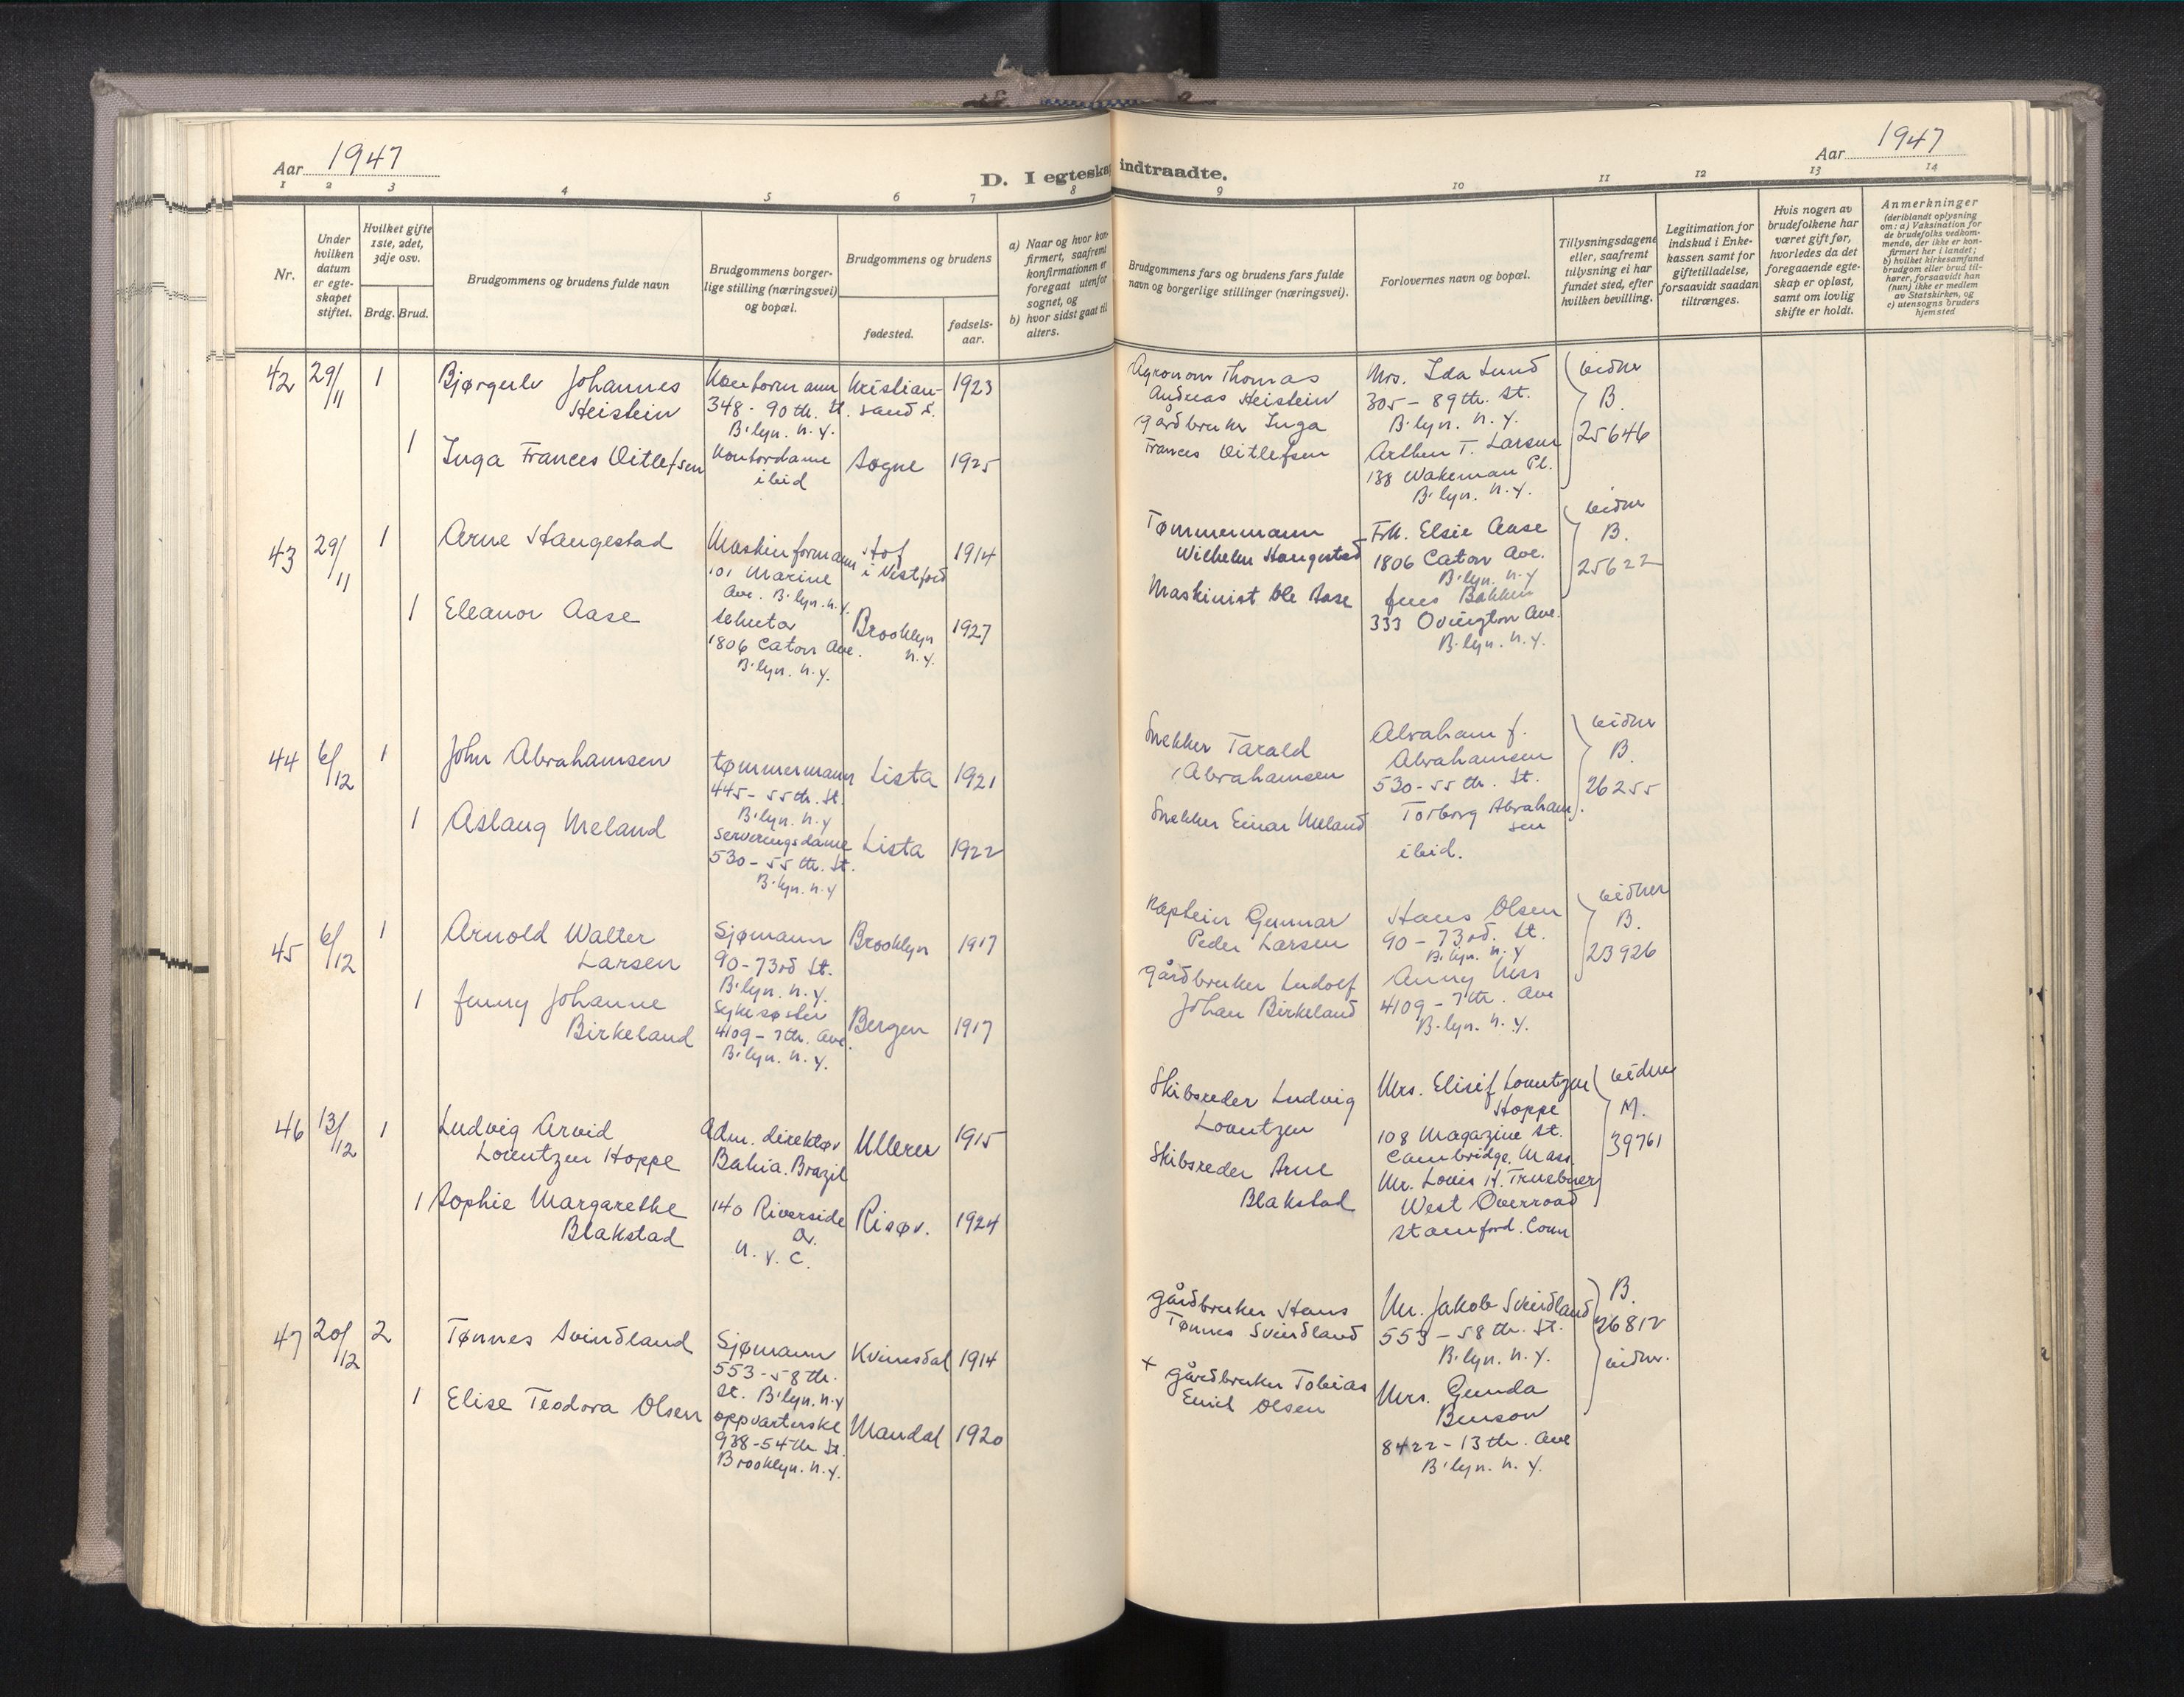 Aar 1947
D. I egteskap indtraadte.
Aar 1947
1 2 3 4 5 6 7 8 9 10 11 12 13 14
Nr.
Under hvilken datum er egte-skapet stiftet.
Hvilket gifte 1ste, 2det, 3dje osv.
Brdg. Brud.
Brudgommens og brudens fulde navn
Brudgommens borger-lige stilling (næringsvei) og bopæl.
Brudgommens og brudens
fødested.
fødsels-aar.
a) Naar og hvor kon-
firmert, saafremt
konfirmationen er
foregaat utenfor
sognet, og
b) hvor sidst gaat til
alters.
Brudgommens fars og brudens fars fulde
navn og borgerlige stillinger (næringsvei).
Forlovernes navn og bopæl.
Tillysningsdagene
eller, saafremt
tillysning ei har
fundet sted, efter
hvilken bevilling.
Legitimation for
indskud i Enke-
kassen samt for
giftetilladelse,
forsaavidt saadan
tiltrænges.
Hvis nogen av
brudefolkene har
været gift før,
hvorledes da det
foregaaende egte-
skap er opløst,
samt om lovlig
skifte er holdt.
Anmerkninger
(deriblandt oplysning
om: a) Vaksination for
de brudefolks vedkom-
mende, der ikke er kon-
firmert her i landet;
b) hvilket kirkesamfund
brudgom eller brud til-
hører, forsaavidt han
(hun) ikke er medlem
av Statskirken, og
c) utensogns bruders
hjemsted
42 29/11 1
Bjørgulv Johannes
Heistein
Kontormann
348 - 90th. St.
B'lyn. N.Y.
Kristian-
sand S.
1923
Agronom Thomas
Andreas Heistein
Mrs. Ida Lund
305 - 89th. St.
B'lyn. N.Y.
vidner
B.
25646
1
Inga Frances Ditlefsen
Kontordame
ibid
Søgne
1925
gårdbruker Inga
Frances Ditlefsen
Arthur T. Larsen
138 Wakeman Pl.
B'lyn. N.Y.
43 29/11 1
Arne Haugestad
Maskinformann
101 Marine
Ave. B'lyn. N.Y.
Hof
i Vestfold
1914
Tømmermann
Wilhelm Haugestad
Frk. Elsie Aase
1806 Caton Ave.
B'lyn. N.Y
vidner
B.
25622
1
Eleanor Aase
1806 Caton Ave.
B'lyn. N.Y.
Brooklyn
N.Y.
1927
Maskinist Ole Aase
Jens Bakken
333 Ovington Ave.
B'lyn. N.Y.
44 6/12 1
John Abrahamsen
tømmermann
445 - 55th. St.
B'lyn. N.Y
Lista
1921
Snekker Tarald
Abrahamsen
Abraham J.
Abrahamsen
530 - 55th. St.
vidner
B.
26255
1
Aslaug Meland
serveringsdame
530 - 55th. St.
B'lyn. N.Y
Lista
1922
Snekker Einar Meland
Torborg Abraham
sen
ibid.
45 6/12 1
Arnold Walter
Larsen
Sjømann
90 - 73rd St.
B'lyn. N.Y.
Brooklyn
1917
Kaptein Gunnar
Peder Larsen
Hans Olsen
90 - 73rd. St.
B'lyn. N.Y
vidner
B.
23926
1
Jenny Johanne
Birkeland
Sykesøster
4109 - 7th. Ave.
B'lyn. N.Y.
Bergen
1917
gårdbruker Ludolf
Johan Birkeland
Anny Ness
4109 - 7th. Ave
B'lyn. N.Y.
46 13/12 1
Ludvig Arvid
Lorentzen Hoppe
Adm. direktør
Bahia. Brazil
Ullern
1915
Skibsreder Ludvig
Lorentzen
Mrs. Elisif Lorentzen
Hoppe
108 Magazine St.
Cambridge. Mass.
vidner
M.
39761
1
Sophie Margarethe
Blakstad
140 Riverside
Dr.
N.Y.C.
Risør.
1924
Skibsreder Arne
Blakstad
Mr. Louis H. Truebner
West Overroad
Stamford. Conn
47 20/12 2
Tønnes Svindland
Sjømann
553 - 58th.
St. B'lyn. N.Y
Kvinesdal
1914
gårdbruker Hans
Tønnes Svindland
Mr. Jakob Svindland
553 - 58th. St.
B'lyn. N.Y.
B.
26812
vidner.
1
Elise Teodora Olsen
oppvarterske
938 - 54th St.
Brooklyn. N.Y.
Mandal
1920
+ gårdbruker Tobias
Emil Olsen
Mrs. Gunda
Benson
8422 - 13th. Ave
B'lyn. N.Y.